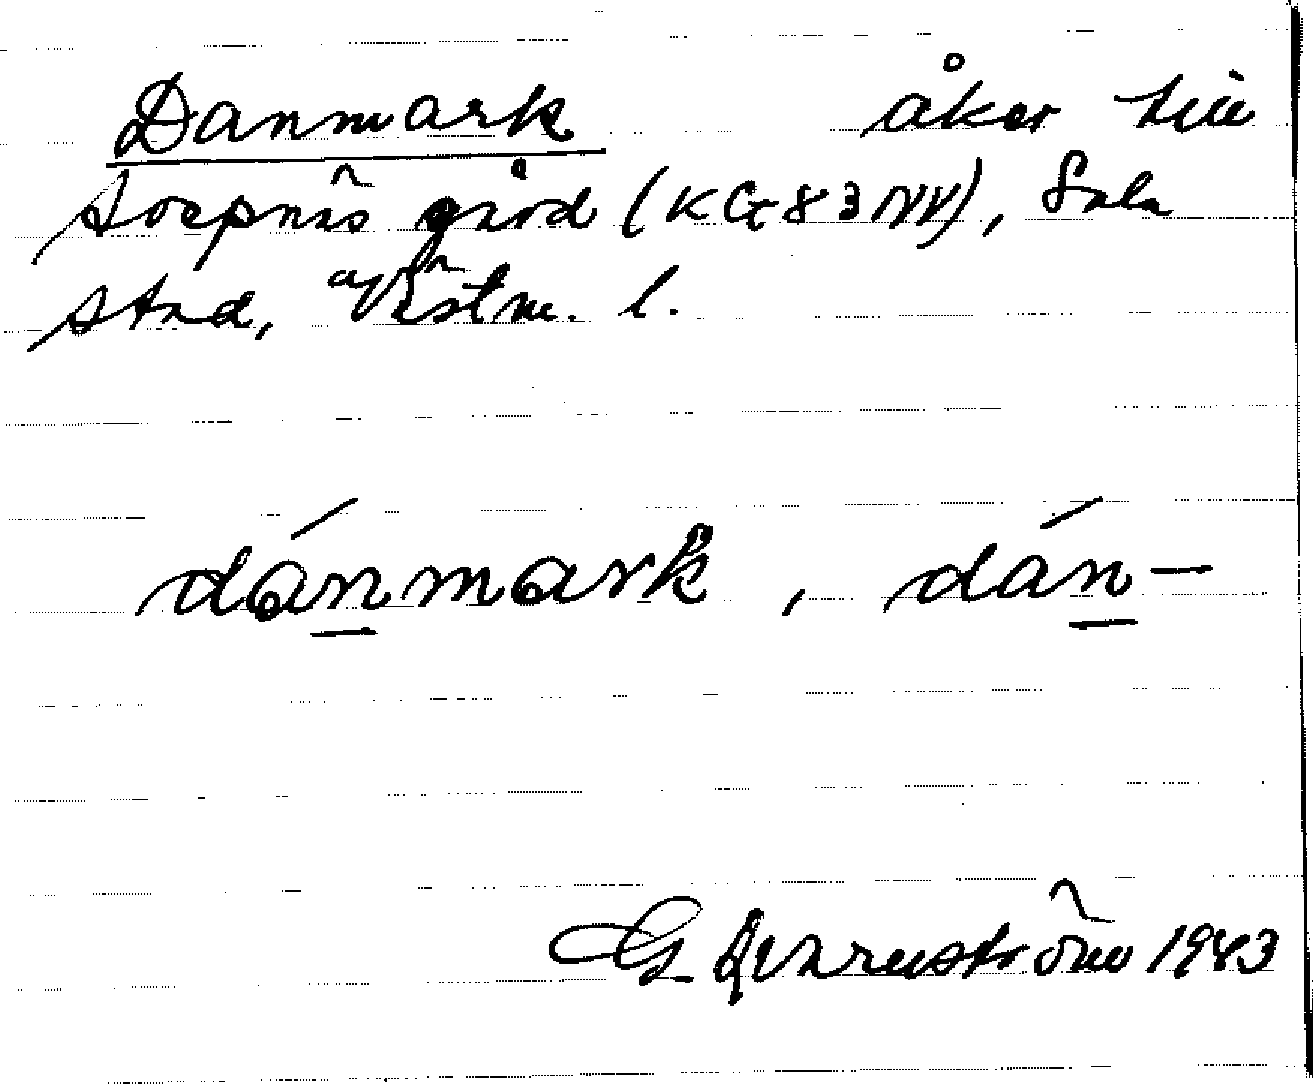 Danmark åker till
Sorpnäs gård (KG83NY), Sala
stad, Västm. l.
dánmark, dán-
G Qvarnström 1983